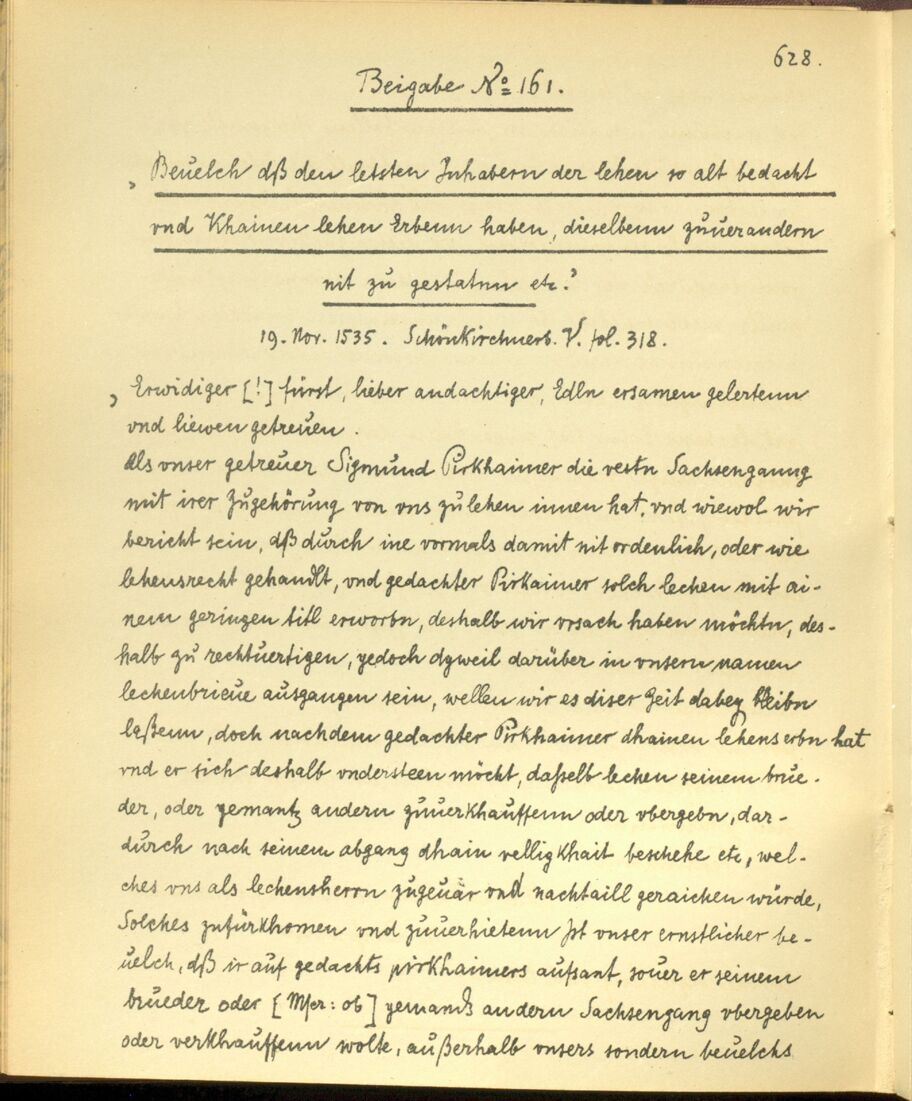 628.
Beigabe No 161.
„Beuelch dß den letsten Inhabern der lehen so alt bedacht
vnd Khainen lehen Erbenn haben, dieselbenn zuuerandern
nit zu gestatnn etc.“
19. Nov. 1535. Schönkirchnerb. V. fol. 318.
„Erwidiger [!] fürst, lieber andachtiger, Edln ersamen gelertenn
vnd liewen getreuen.
Als vnser getreuer Sigmund Pirkhaimer die vestn Sachsenganng
mit irer Zugehörung von vns zulehen innen hat, vnd wiewol wir
bericht sein, dß durch ine vormals damit nit ordenlich, oder wie
lehensrecht gehandlt, vnd gedachter Pirkaimer solch lechen mit ai-
nem geringen titl erworbn, deshalb wir vrsach haben möchtn, des-
halb zu rechtuertigen, yedoch dyweil darüber in vnsern namen
lechenbrieue ausgangen sein, wellen wir es diser Zeit dabey bleibn
laßenn, doch nachdem gedachter Pirkhaimer dhainen lehenserbn hat
vnd er sich deshalb vndersteen möcht, dasselb lechen seinem brue-
der, oder yemantz andern zuuerkhauffenn oder vbergebn, dar-
durch nach seinem abgang dhain velligkhait beschehe etc, wel-
ches vns als lechensherrn zugeuär vnd nachtaill geraichen würde,
Solches zufürkhomen vnd zuuerhietenn Ist vnser ernstlicher be-
uelch, dß ir auf gedachts pirkhaimers aufsant, souer er seinem
brueder oder [Mscr: ob] yemands andern Sachsengang vbergeben
oder verkhauffenn wolte, außerhalb vnsers sondern beuelchs